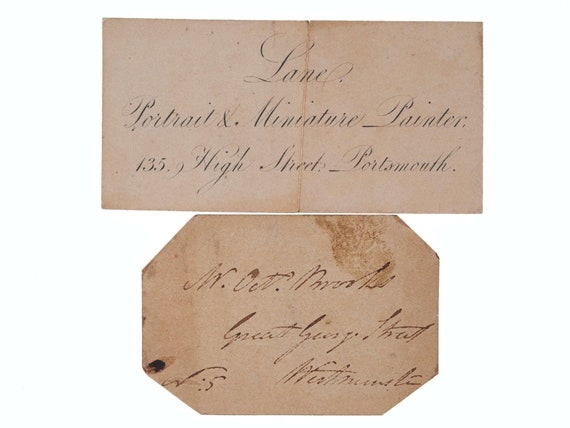 Lane.
Portrait & Miniature Painter.
135, High Street, Portsmouth.
Mr. Octs. Brooks
Great George Street
No. 5 Westminster